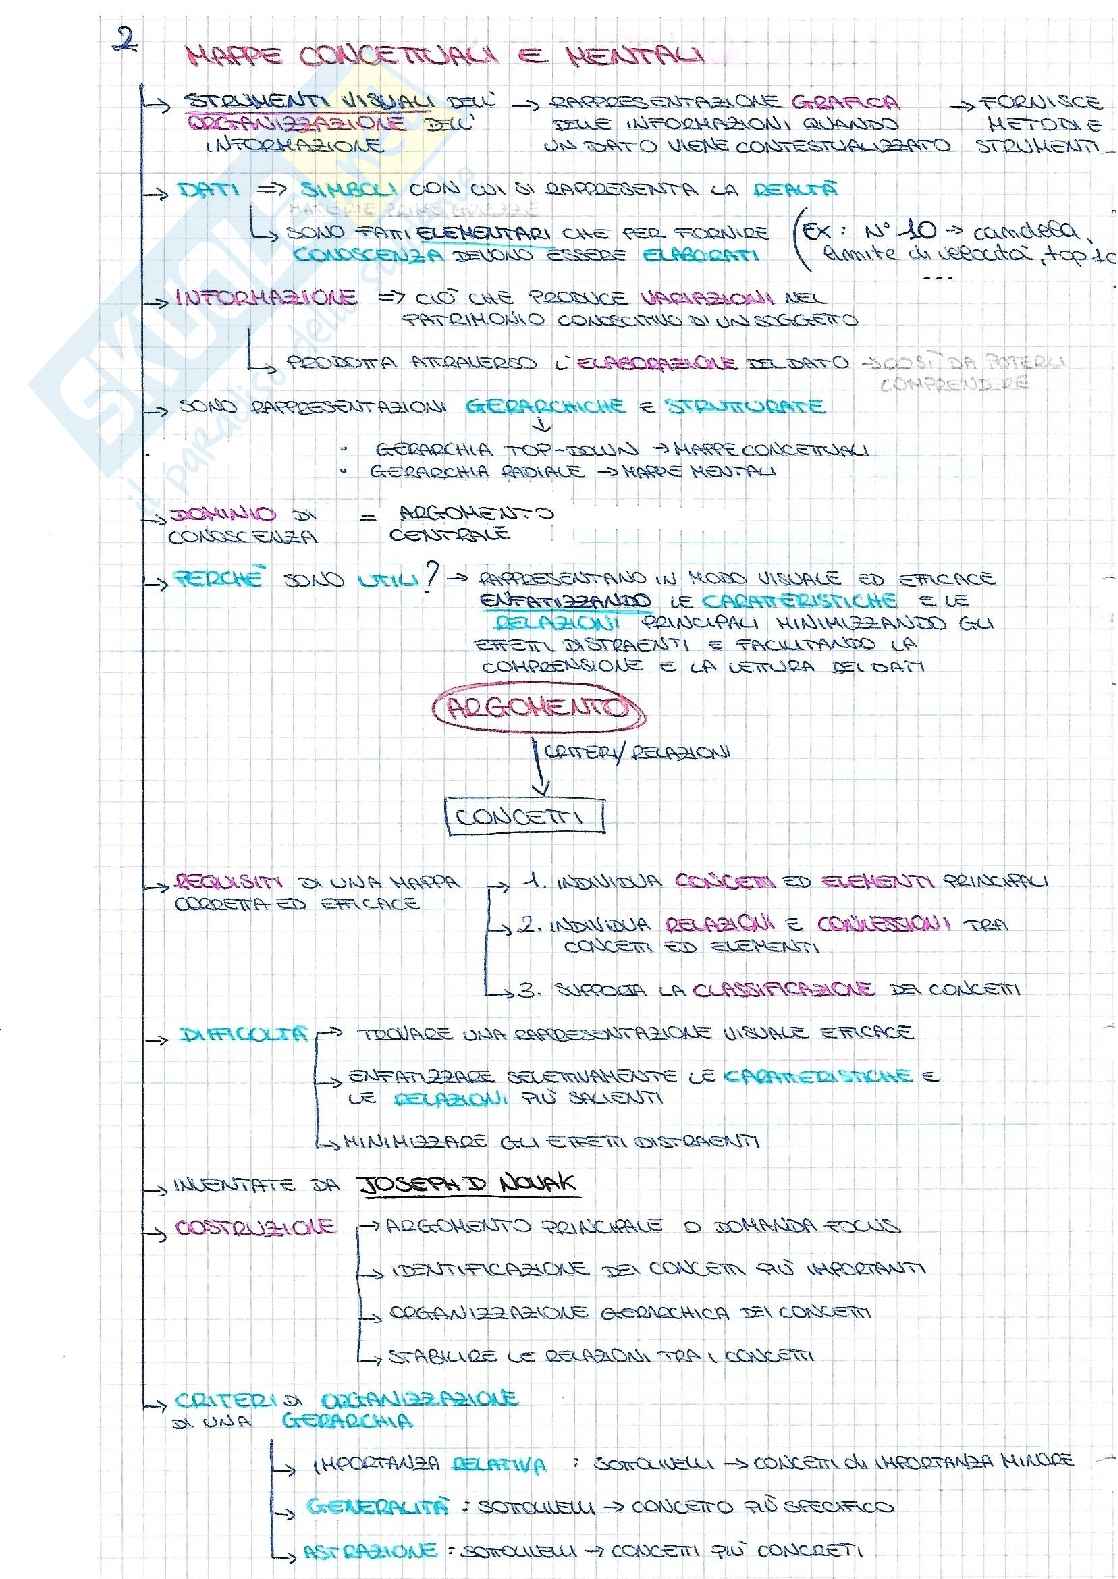 2
MAPPE CONCETTUALI E MENTALI
STRUMENTI VISUALI DELL' → RAPPRESENTAZIONE GRAFICA → FORNISCE
ORGANIZZAZIONE DELL' DELLE INFORMAZIONI QUANDO METODI E
INFORMAZIONE UN DATO VIENE CONTESTUALIZZATO STRUMENTI
DATI => SIMBOLI CON CUI SI RAPPRESENTA LA REALTÀ
MATERIE PRIME
SONO FATTI ELEMENTARI CHE PER FORNIRE (EX: N° 10 → candela,
CONOSCENZA DEVONO ESSERE ELABORATI limite di velocità, top 10
...
INFORMAZIONE => CIÒ CHE PRODUCE VARIAZIONI NEL
PATRIMONIO CONOSCITIVO DI UN SOGGETTO
PRODOTTA ATTRAVERSO L'ELABORAZIONE DEL DATO → COSÌ DA POTERLI
COMPRENDERE
SONO RAPPRESENTAZIONI GERARCHICHE E STRUTTURATE
• GERARCHIA TOP-DOWN → MAPPE CONCETTUALI
• GERARCHIA RADIALE → MAPPE MENTALI
DOMINIO DI = ARGOMENTO
CONOSCENZA CENTRALE
PERCHÈ SONO UTILI? → RAPPRESENTANO IN MODO VISUALE ED EFFICACE
ENFATIZZANDO LE CARATTERISTICHE E LE
RELAZIONI PRINCIPALI MINIMIZZANDO GLI
EFFETTI DISTRAENTI E FACILITANDO LA
COMPRENSIONE E LA LETTURA DEI DATI
ARGOMENTO
CRITERI/RELAZIONI
CONCETTI
REQUISITI DI UNA MAPPA → 1. INDIVIDUA CONCETTI ED ELEMENTI PRINCIPALI
CORRETTA ED EFFICACE
2. INDIVIDUA RELAZIONI E CONNESSIONI TRA
CONCETTI ED ELEMENTI
3. SUPPORTA LA CLASSIFICAZIONE DEI CONCETTI
DIFFICOLTÀ → TROVARE UNA RAPPRESENTAZIONE VISUALE EFFICACE
ENFATIZZARE SELETTIVAMENTE LE CARATTERISTICHE E
LE RELAZIONI PIÙ SALIENTI
MINIMIZZARE GLI EFFETTI DISTRAENTI
INVENTATE DA JOSEPH D NOVAK
COSTRUZIONE → ARGOMENTO PRINCIPALE O DOMANDA FOCUS
IDENTIFICAZIONE DEI CONCETTI PIÙ IMPORTANTI
ORGANIZZAZIONE GERARCHICA DEI CONCETTI
STABILIRE LE RELAZIONI TRA I CONCETTI
CRITERI DI ORGANIZZAZIONE
DI UNA GERARCHIA
IMPORTANZA RELATIVA : SOTTOLIVELLI → CONCETTI DI IMPORTANZA MINORE
GENERALITÀ : SOTTOLIVELLI → CONCETTO PIÙ SPECIFICO
ASTRAZIONE : SOTTOLIVELLI → CONCETTI PIÙ CONCRETI